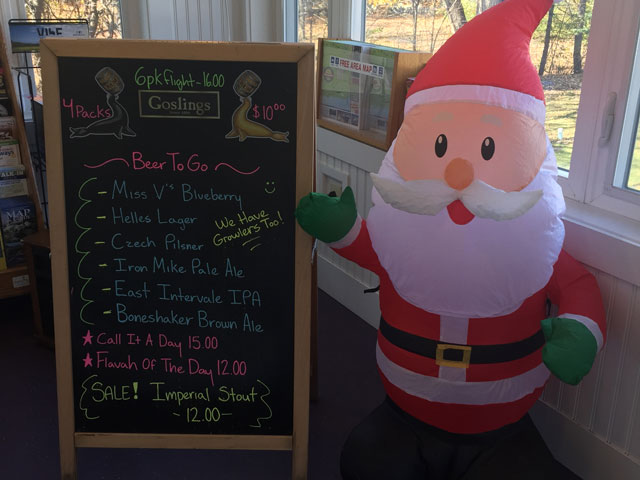 6pk flight - 16.00
4 Packs
Goslings
$10⁰⁰
Beer To Go
- Miss V's Blueberry
- Helles Lager
- Czech Pilsner
We Have
Growlers Too!
- Iron Mike Pale Ale
- East Intervale IPA
- Boneshaker Brown Ale
★ Call It A Day 15.00
★ Flavah Of The Day 12.00
SALE! Imperial Stout
- 12.00 -
FREE AREA MAP
MAP